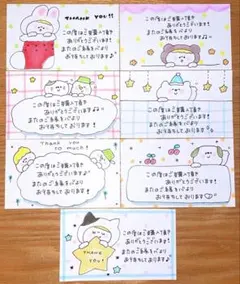 THANK YOU!!
この度はご購入て頂き
ありがとうございます!
またのご縁を心より
お待ちしております♪
この度はご購入て頂き
ありがとうございます♪
またのご縁を心より
お待ちしております♪
この度はご購入て頂き
ありがとうございます!
またのご縁を心より
お待ちしております!
この度はご購入て頂き
ありがとうございます!
またのご縁を心より
お待ちしております!
THANK YOU
SO MUCH!
この度はご購入て頂き
ありがとうございます!
またのご縁を心より
お待ちしております!
この度はご購入て頂き
ありがとうございます!
またのご縁を心より
お待ちしております!
THANK
YOU!
この度はご購入て頂き
ありがとうございます!
またのご縁を心より
お待ちしております!